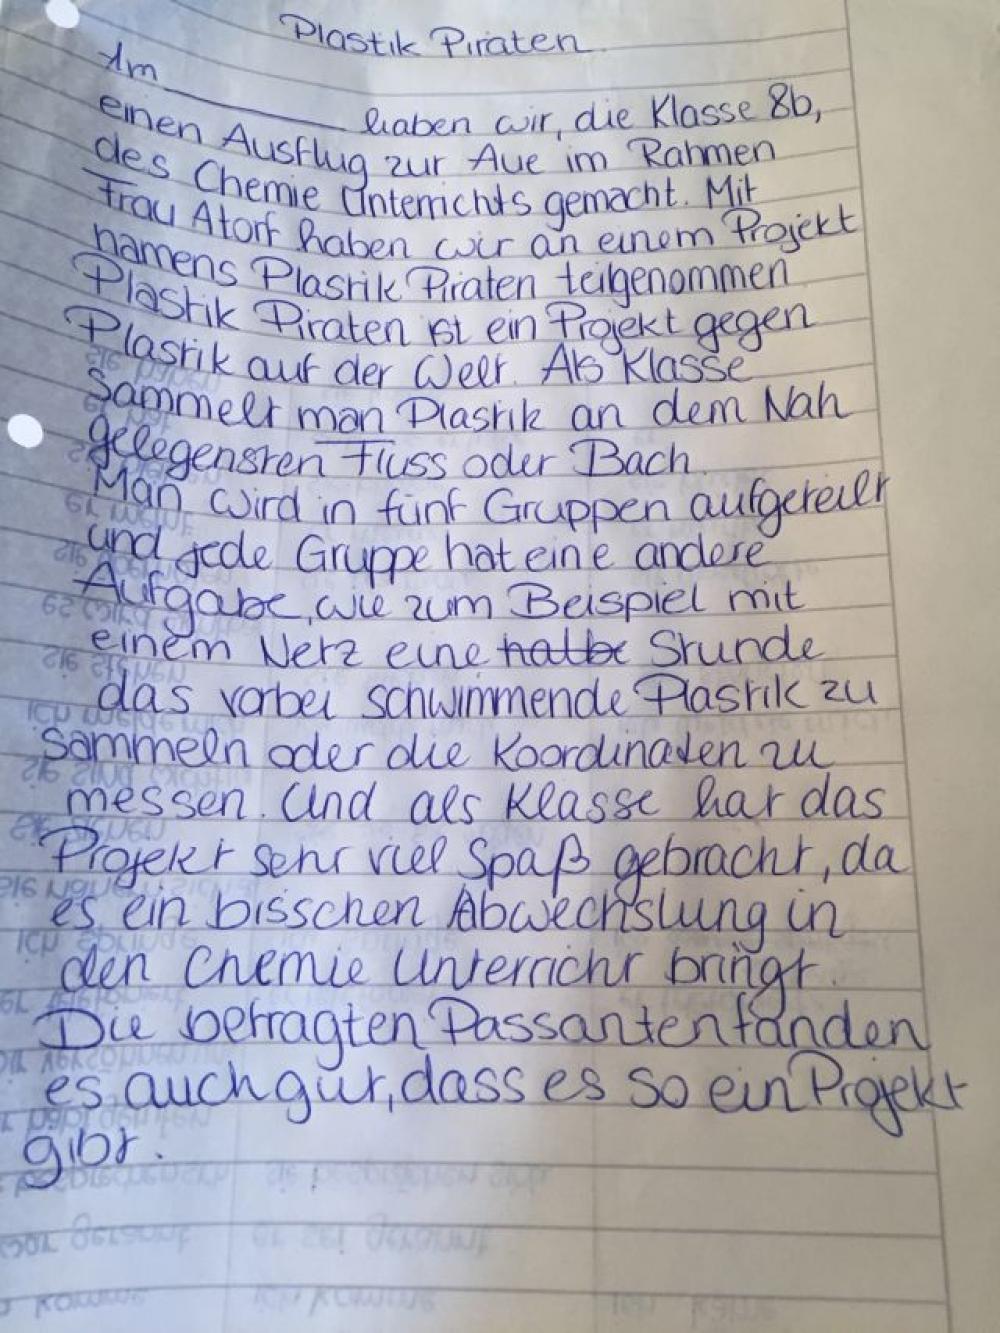 Plastik Piraten
Im
haben wir, die Klasse 8b,
einen Ausflug zur Aue im Rahmen
des Chemie Unterrichts gemacht. Mit
Frau Atorf haben wir an einem Projekt
namens Plastik Piraten teilgenommen
Plastik Piraten ist ein Projekt gegen
Plastik auf der Welt. Als Klasse
Sammelt man Plastik an dem Nah
gelegensten Fluss oder Bach.
Man wird in fünf Gruppen aufgeteilt
und jede Gruppe hat eine andere
Aufgabe, wie zum Beispiel mit
einem Netz eine halbe Stunde
das vorbei schwimmende Plastik zu
sammeln oder die Koordinaten zu
messen. Und als Klasse hat das
Projekt sehr viel Spaß gebracht, da
es ein bisschen Abwechslung in
den Chemie Unterricht bringt.
Die befragten Passanten fanden
es auch gut, dass es so ein Projekt
gibt.